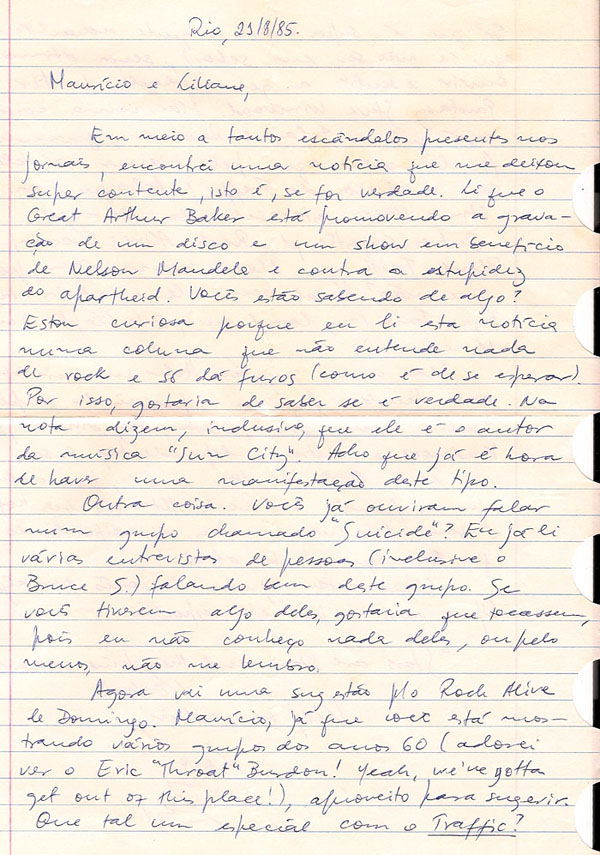 Rio, 21/8/85.
Maurício e Liliane,
Em meio a tantos escândalos presentes nos
jornais, encontrei uma notícia que me deixou
super contente, isto é, se for verdade. Li que o
Great Arthur Baker está promovendo a grava-
ção de um disco e um show em benefício
de Nelson Mandela e contra a estupidez
do apartheid. Vocês estão sabendo de algo?
Estou curiosa porque eu li esta notícia
numa coluna que não entende nada
de rock e só dá furos (como é de se esperar).
Por isso, gostaria de saber se é verdade. Na
nota dizem, inclusive, que ele é o autor
da música "Sun City". Acho que já é hora
de haver uma manifestação deste tipo.
Outra coisa. Vocês já ouviram falar
num grupo chamado "Suicide"? Eu já li
várias entrevistas de pessoas (inclusive o
Bruce S.) falando bem deste grupo. Se
vocês tiverem algo deles, gostaria que tocassem,
pois eu não conheço nada deles, ou pelo
menos, não me lembro.
Agora vai uma sugestão p/o Rock Alive
de Domingo. Maurício, já que você está mos-
trando vários grupos dos anos 60 (adorei
ver o Eric "Throat" Burdon! Yeah, we've gotta
get out of this place!), aproveito para sugerir.
Que tal um especial com o Traffic?